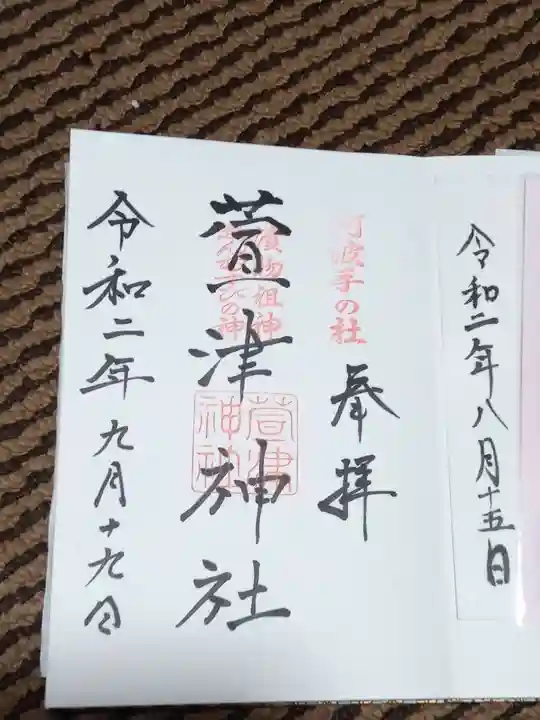 令和二年八月十五日
阿波手の社
奉拝
漬物祖神
縁むすびの神
萱津神社
萱津神社
令和二年九月十九日